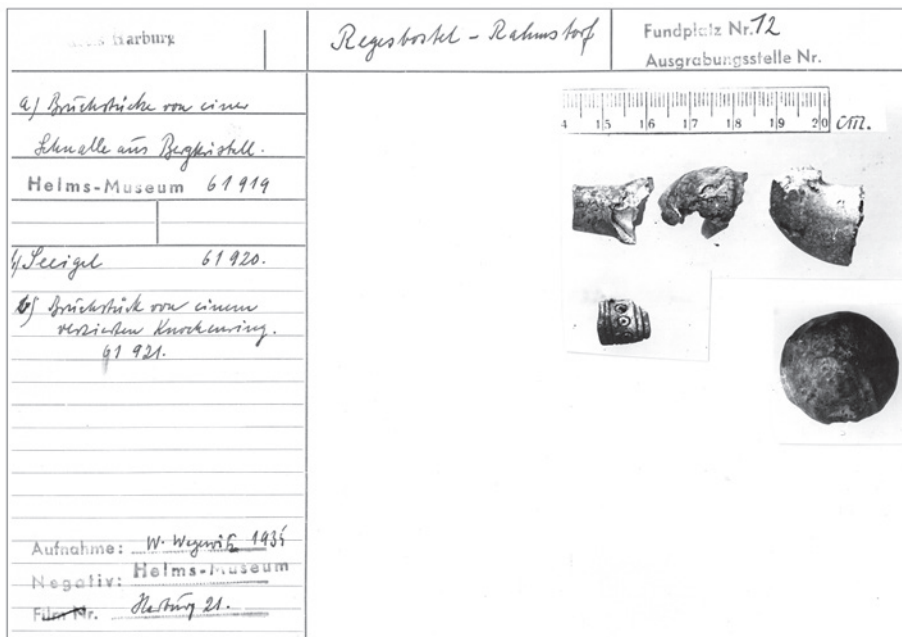 Harburg
Regesbostel - Rahmstorf
Fundplatz Nr. 12
Ausgrabungsstelle Nr.
a) Bruchstücke von einer
Schnalle aus Bergkristall.
Helms-Museum 61919
Seeigel 61920.
Bruchstück von einem
verzierten Knochenring.
61921.
4 15 16 17 18 19 20 cm.
Aufnahme: W. Wegewitz 1935
Negativ: Helms-Museum
Film Nr. Harburg 21.